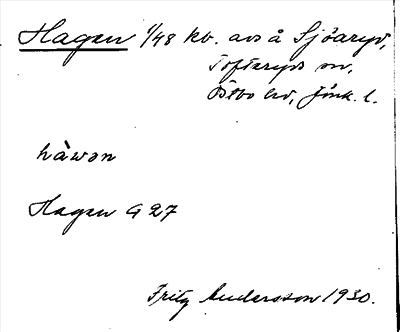 Hagen 1/48 kv. avs å Sjöaryd,
Tofteryds sn,
Östbo hd, Jönk. l.
hàwən
Hagen G 27
Fritz Andersson 1930.